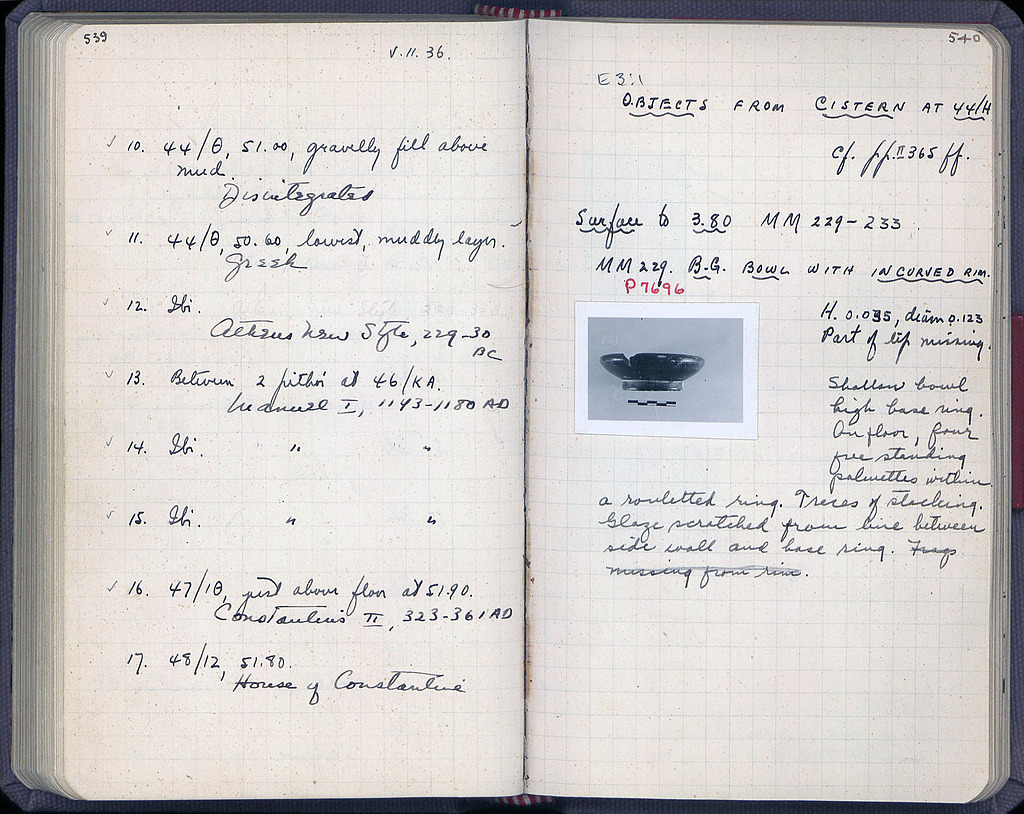 539
V. 11. 36.
✓ 10. 44/Θ, 51.00, gravelly fill above
mud.
Disintegrated
✓ 11. 44/Θ, 50.60, lowest, muddy layer.
Greek
✓ 12. Ibi.
Athens New Style, 229-30
BC
✓ 13. Between 2 pithoi at 46/KA.
Manuel I, 1143-1180 AD
✓ 14. Ibi. " "
✓ 15. Ibi. " "
✓ 16. 47/ΙΘ, just above floor at 51.90.
Constantius II, 323-361 AD
17. 48/12, 51.80.
House of Constantine
540
E 3:1
OBJECTS FROM CISTERN AT 44/H
Cf. pp. II 365 ff.
Surface to 3.80 MM 229-233
MM 229. B.G. BOWL WITH INCURVED RIM.
P 7696
H. 0.035, diam 0.123
Part of lip missing.
Shallow bowl
high base ring.
On floor, four
free standing
palmettes within
a rouletted ring. Traces of stacking.
Glaze scratched from line between
side wall and base ring. Frags
missing from rim.